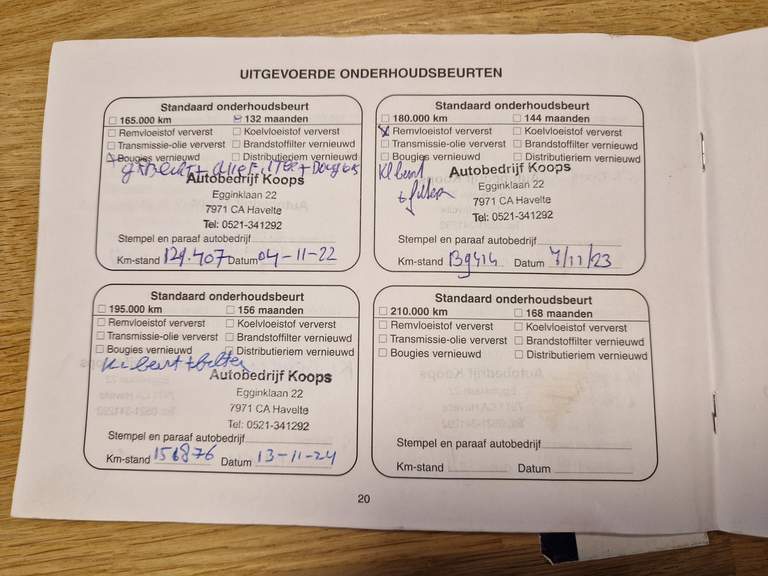 UITGEVOERDE ONDERHOUDSBEURTEN
Standaard onderhoudsbeurt
165.000 km 132 maanden
Remvloeistof ververst Koelvloeistof ververst
Transmissie-olie ververst Brandstoffilter vernieuwd
Bougies vernieuwd Distributieriem vernieuwd
Autobedrijf Koops
Egginklaan 22
7971 CA Havelte
Tel: 0521-341292
Stempel en paraaf autobedrijf
Km-stand 129.407 Datum 04-11-22
Standaard onderhoudsbeurt
180.000 km 144 maanden
Remvloeistof ververst Koelvloeistof ververst
Transmissie-olie ververst Brandstoffilter vernieuwd
Bougies vernieuwd Distributieriem vernieuwd
Kl beurt
+ filter
Autobedrijf Koops
Egginklaan 22
7971 CA Havelte
Tel: 0521-341292
Stempel en paraaf autobedrijf
Km-stand Datum 7/11/23
Standaard onderhoudsbeurt
195.000 km 156 maanden
Remvloeistof ververst Koelvloeistof ververst
Transmissie-olie ververst Brandstoffilter vernieuwd
Bougies vernieuwd Distributieriem vernieuwd
Kl beurt +
Autobedrijf Koops
Egginklaan 22
7971 CA Havelte
Tel: 0521-341292
Stempel en paraaf autobedrijf
Km-stand 151876 Datum 13-11-24
Standaard onderhoudsbeurt
210.000 km 168 maanden
Remvloeistof ververst Koelvloeistof ververst
Transmissie-olie ververst Brandstoffilter vernieuwd
Bougies vernieuwd Distributieriem vernieuwd
Stempel en paraaf autobedrijf
Km-stand Datum
20